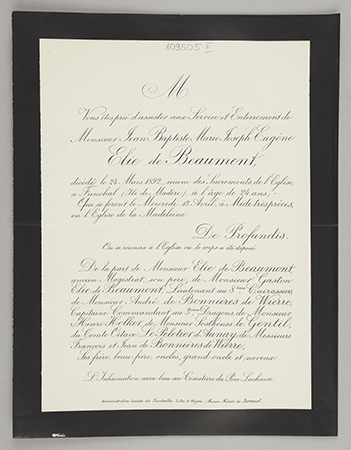 109605 E
M
Vous êtes prié d'assister aux Service et Enterrement de
Monsieur Jean Baptiste Marie Joseph Eugène
Elie de Beaumont,
décédé le 24 Mars 1892, muni des Sacrements de l'Eglise,
à Funchal (Ile de Madère), à l'âge de 24 ans;
Qui se feront le Mercredi 13 Avril, à Midi très précis,
en l'Eglise de la Madeleine.
De Profundis.
On se réunira à l'Eglise où le corps a été déposé.
De la part de Monsieur Elie de Beaumont,
ancien Magistrat, son père, de Monsieur Gaston
Elie de Beaumont, Lieutenant au Cuirassiers,
de Monsieur André de Bonnières de Wierre,
Capitaine Commandant au Dragons, de Monsieur
Henri de Monsieur Sosthènes Le Gentil,
du Comte Octave Le Peletier d'Aunay, de Messieurs
François et Jean de Bonnières de Wierre,
Ses frère, beau-frère, oncles, grand oncle et neveux.
L'Inhumation aura lieu au Cimetière du Père Lachaise.
Administration Spéciale des Funérailles, Maison Henri de Borniol